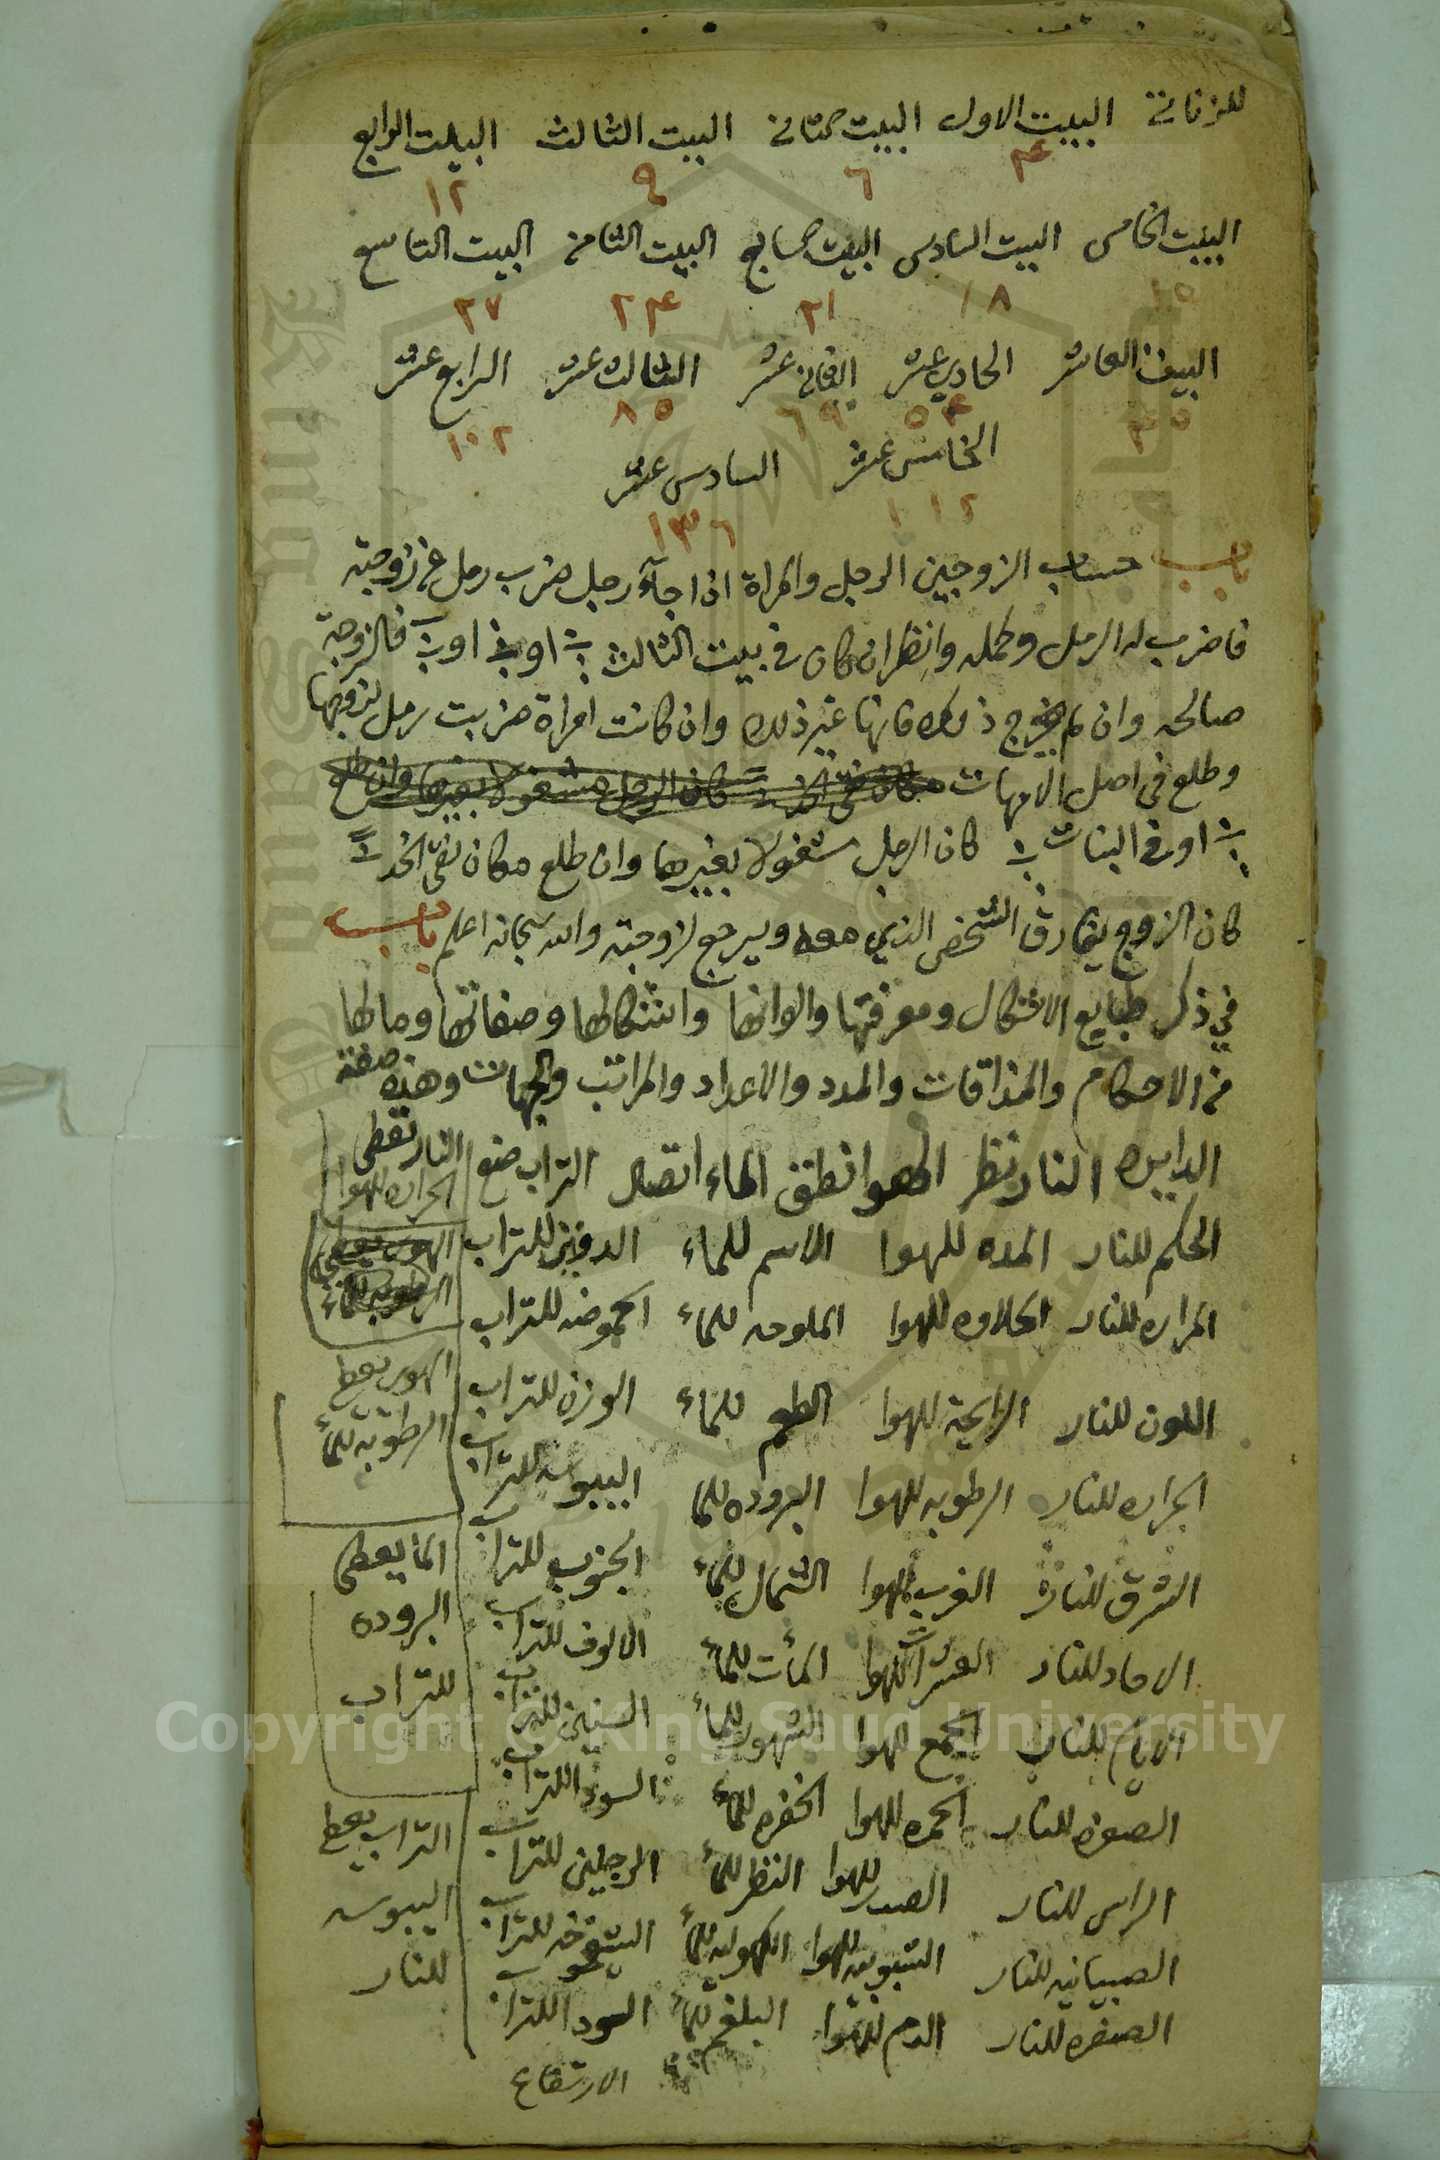 للزناتي البيت الاول البيت الثاني البيت الثالث البيت الرابع
٣ ٦ ٩ ١٢
البيت الخامس البيت السادس البيت السابع البيت الثامن البيت التاسع
١٥ ١٨ ٢١ ٢٤ ٢٧
البيت العاشر الحادي عشر الثاني عشر الثالث عشر الرابع عشر
٥٤ ٦٩ ٨٥ ١٠٢
الخامس عشر السادس عشر
١١٢ ١٣٦
باب حساب الزوجين الرجل والمراة اذا جآء رجل ضرب رمل عن زوجته
فاضرب له الرمل وكمله وانظر ان كان في بيت الثالث او او فالزوجة
صالحه وان لم يخرج ذلك فانها غير ذلك وان كانت امراة ضربت رمل لزوجها
وطلع في اصل الامهات
او في البنات كان الرجل مشغولا بغيرها وان طلع مكان نقي الخد
كان الزوج يفارق الشخص الذي معه ويرجع لزوجته والله سبحانه اعلم باب
في ذكر طبايع الاشكال ومعرفتها والوانها واشكالها وصفاتها وما لها
من الاحكام والمذاقات والمدد والاعداد والمراتب والجهات وهذه صفة
الدايره النار نظر الهوا نطق الماء اتصال التراب
الحكم للنار المده للهوا الاسم للماء الدفين للتراب
المراره للنار الحلاوه للهوا الملوحه للماء الحموضه للتراب
اللون للنار الرايحة للهوا الطعم للماء الوزن للتراب
الحراره للنار الرطوبه للهوا البروده للما اليبوسه للتراب
الشرق للنار الغرب للهوا الشمال للماء الجنوب للتراب
الاحاد للنار العشرات للهوا المأت للماء الالوف للتراب
الايام للنار الجمع للهوا الشهور للماء السنين للتراب
الصفره للنار الحمره للهوا الخضره للماء السودا للتراب
الراس للنار الصدر للهوا النظر للماء الرجلين للتراب
الصبيانيه للنار الشبوبيه للهوا الكهوليه للماء الشيخوخه للتراب
الصفره للنار الدم للهوا البلغم للماء السودا للتراب
الارتفاع
النار تعطي
الحراره للهوا
الهوى يعطي
الرطوبة للماء
الما يعطي
البروده
للتراب
التراب يعطي
اليبوسه
للنار
Copyright © King Saud University
King Saud University
1957